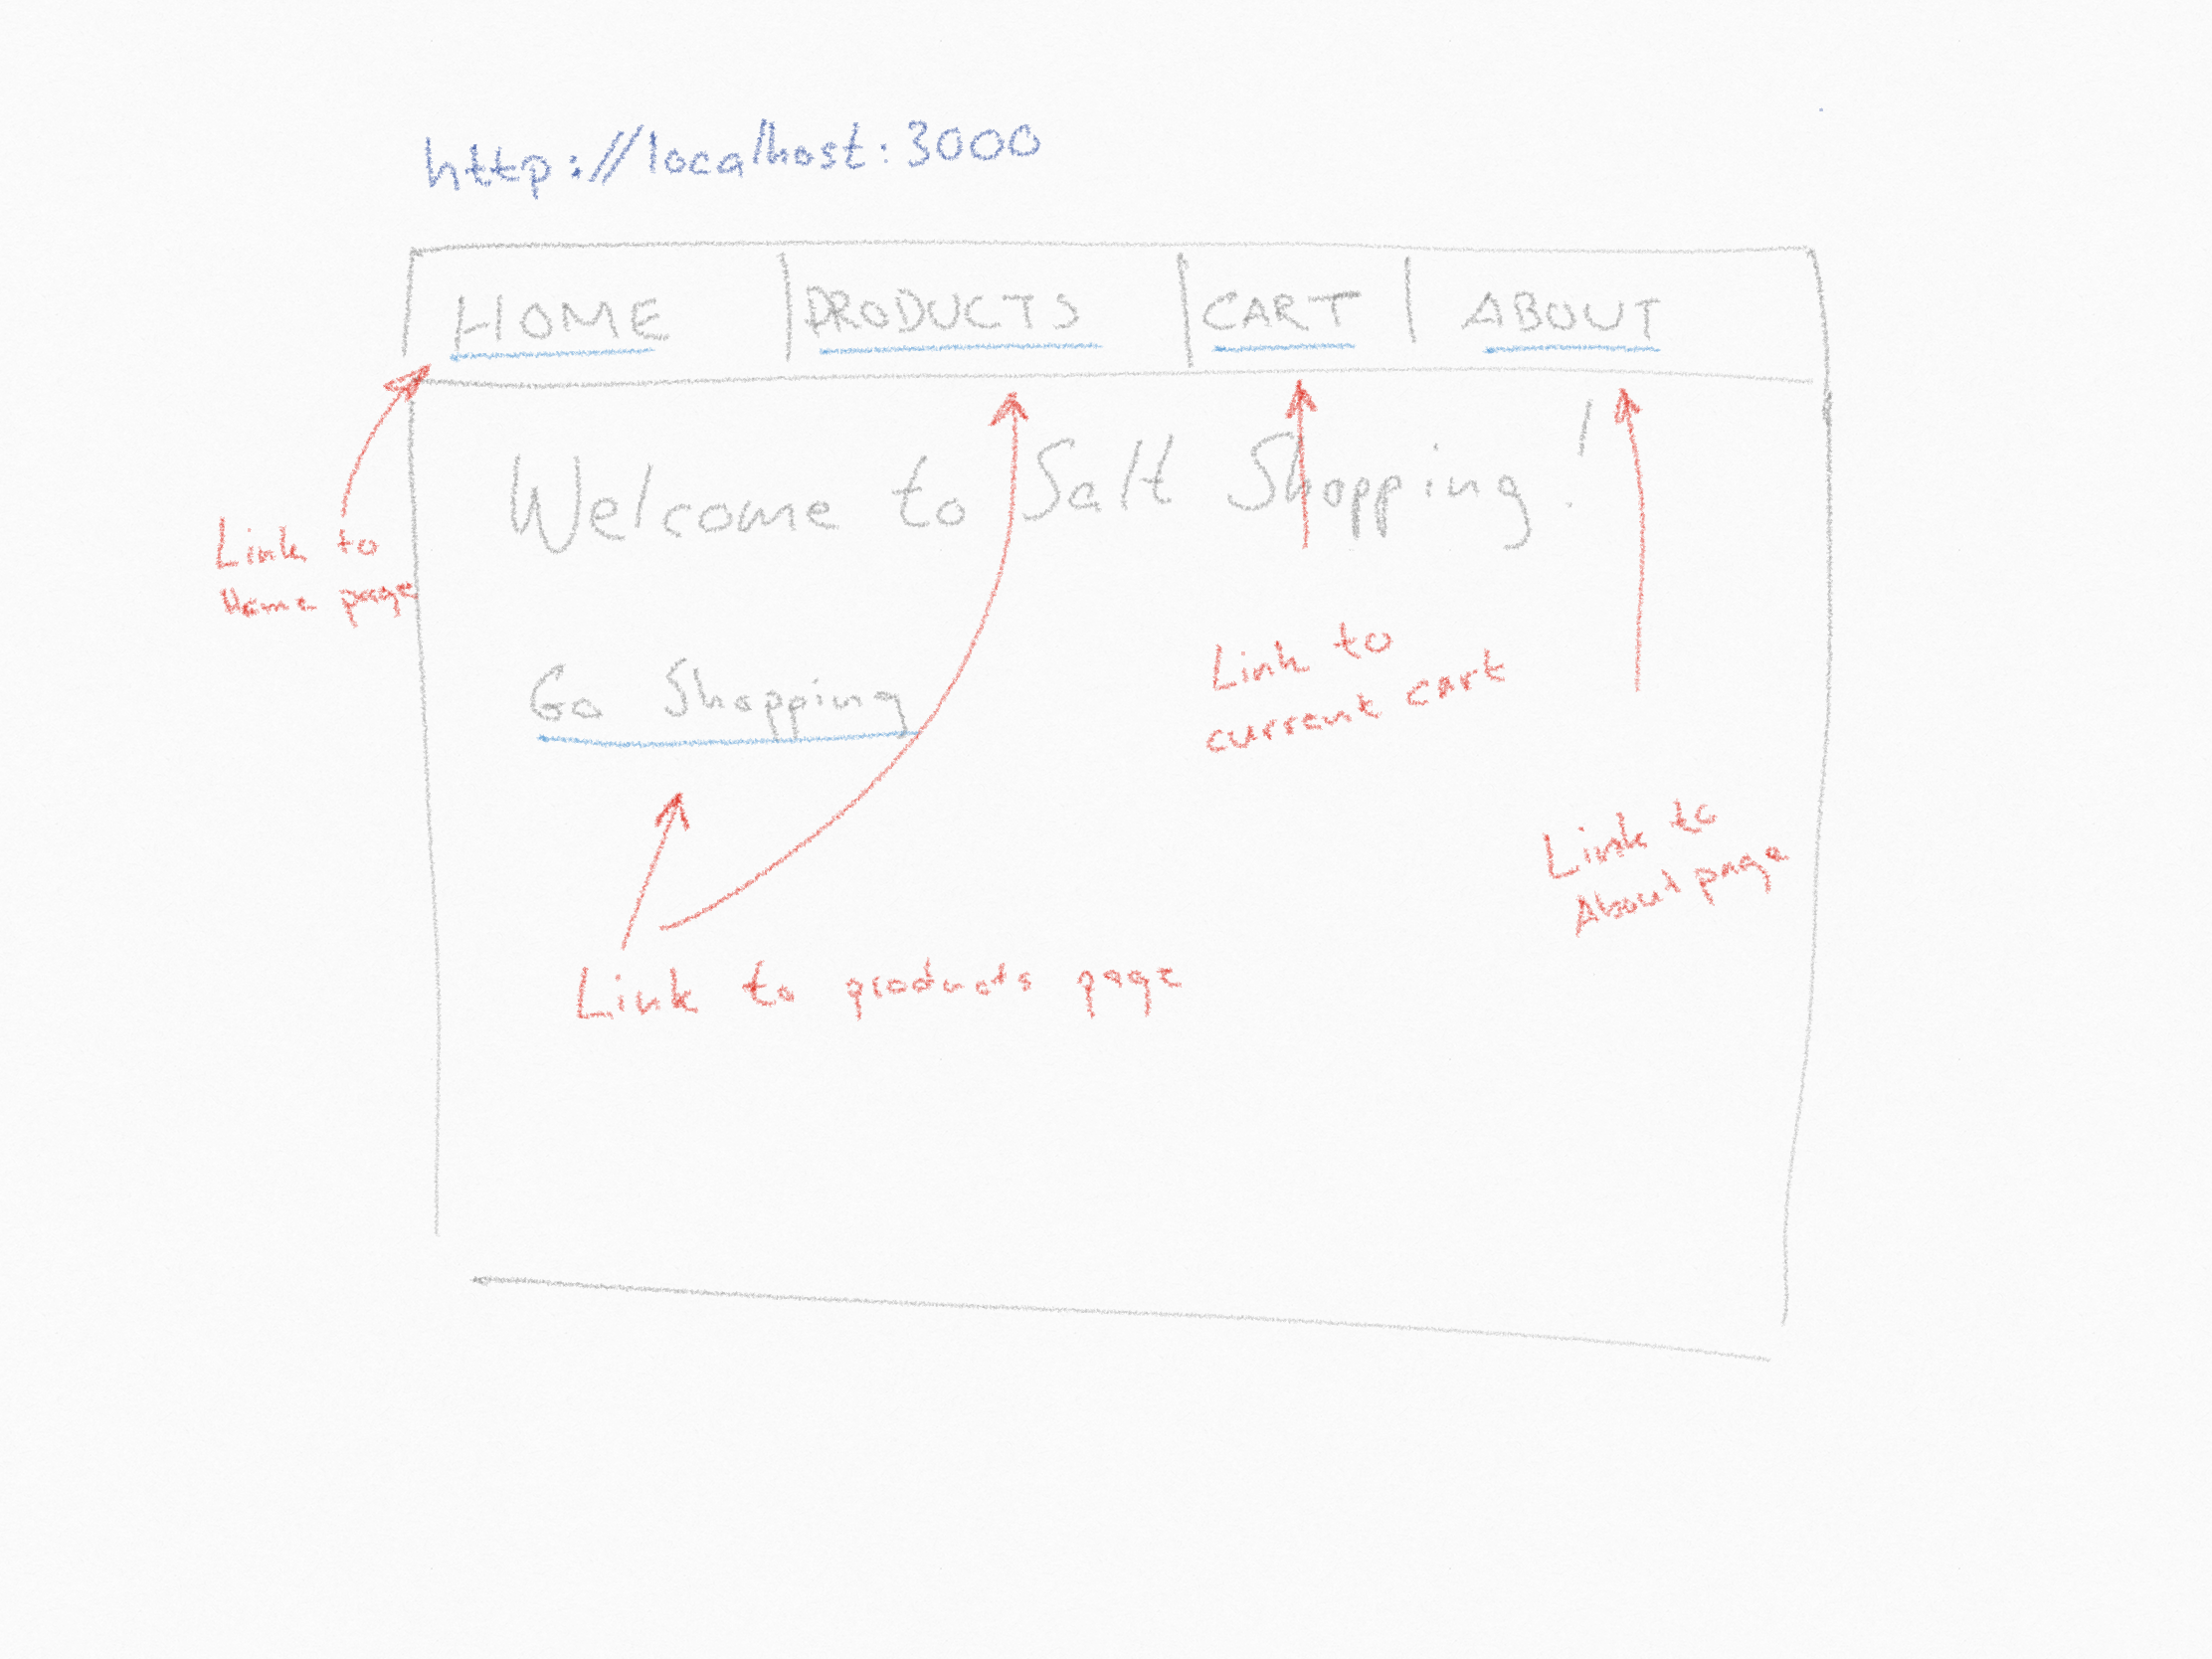 http://localhost:3000
HOME PRODUCTS CART ABOUT
Welcome to Salt Shopping!
Link to
Home page
Go Shopping
Link to
current cart
Link to
About page
Link to products page